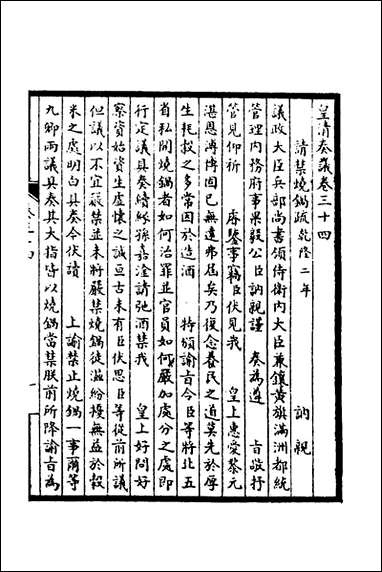 皇清奏議卷三十四
請禁燒鍋疏乾隆二年 訥親
議政大臣兵部尚書領侍衛内大臣兼鑲黃旗滿洲都統
管理内務府事果毅公臣訥親謹 奏為遵 旨敬抒
管見仰祈 睿鑒事竊臣伏見我 皇上惠愛黎元
湛恩溥博固已無遠弗屆矣乃復念養民之道莫先於厚
生耗穀之多常因於造酒 特頒諭旨令臣等將北五
省私開燒鍋者如何治罪並官員如何嚴加處分之處即
行定議具奏續緣孫嘉淦請弛酒禁我 皇上好問好
察資始資生虛懷之誠亘古未有臣伏思臣等從前所議
但議以不宜嚴禁並未將嚴禁燒鍋徒滋紛擾無益於穀
米之處明白具奏今伏讀 上諭禁止燒鍋一事爾等
九卿兩議具奏其大指皆以燒鍋當禁朕前所降諭旨為